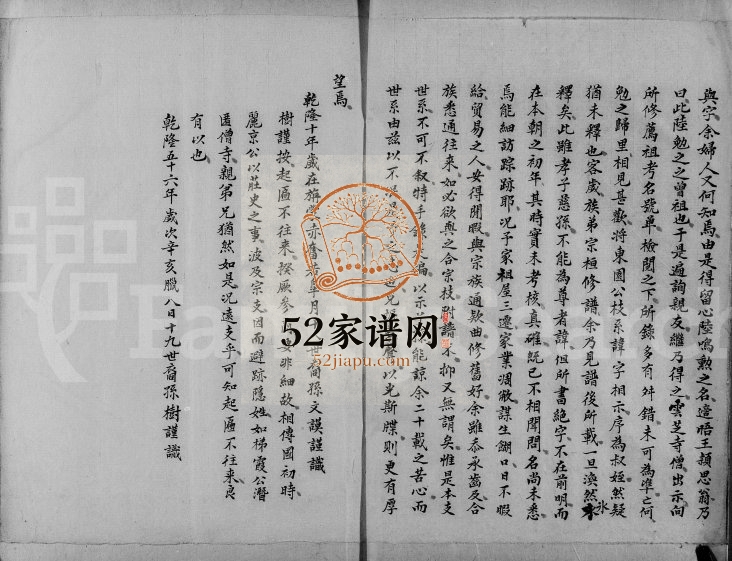 與字余婦人又何知焉由是得留心陸鳴勲之名遑晤王頡思翁乃
曰此陸勉之之曾祖也于是遍詢親友繼乃得之雲芝寺僧出示向
所修薦祖考名號单檢閱之下所錄多有舛錯未可為凖亡何
勉之歸里相見喜歡將東園公枝系諱字相示序為叔姪然疑
猶未釋也客歲族弟宗桓修譜余乃見譜後所載一旦渙然氷
釋矣此雖孝子慈孫不能為尊者諱但所書絶字不在前明而
在本朝之初年其時實未考核真確既已不相聞問名尚未悉
焉能細訪踪跡耶况予家祖屋三遷家業凋敝謀生餬口日不暇
給貿易之人安得閒暇與宗族通欵曲修舊好余雖忝承嵓及合
族悉通往來如必欲與之合宗枝剖譜不抑又無謂矣惟是本支
世系不可不叙特手 編以示 能諒余二十載之苦心而
世系由兹以不 以光斯牒則更有厚
望焉
乾隆十年歲在旃蒙赤奮若 月 世裔孫文謨謹識
樹謹按起區不往來按厥參 要非細故相傳國初時
麗京公以莊史之事波及宗支因而避跡隱姓如梯霞公潛
匿僧寺親弟兄猶然如是况遠支乎可知起區不往來良
有以也
乾隆五十六年歲次辛亥臘八日十九世裔孫樹謹識
52家谱网
52jiapu.com